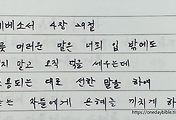 에베소서 4장 29절
무릇 더러운 말은 너희 입 밖에도
내지 말고 오직 덕을 세우는데
소용되는 대로 선한 말을 하여
듣는 자들에게 은혜를 끼치게 하
https://onedaybible.ti